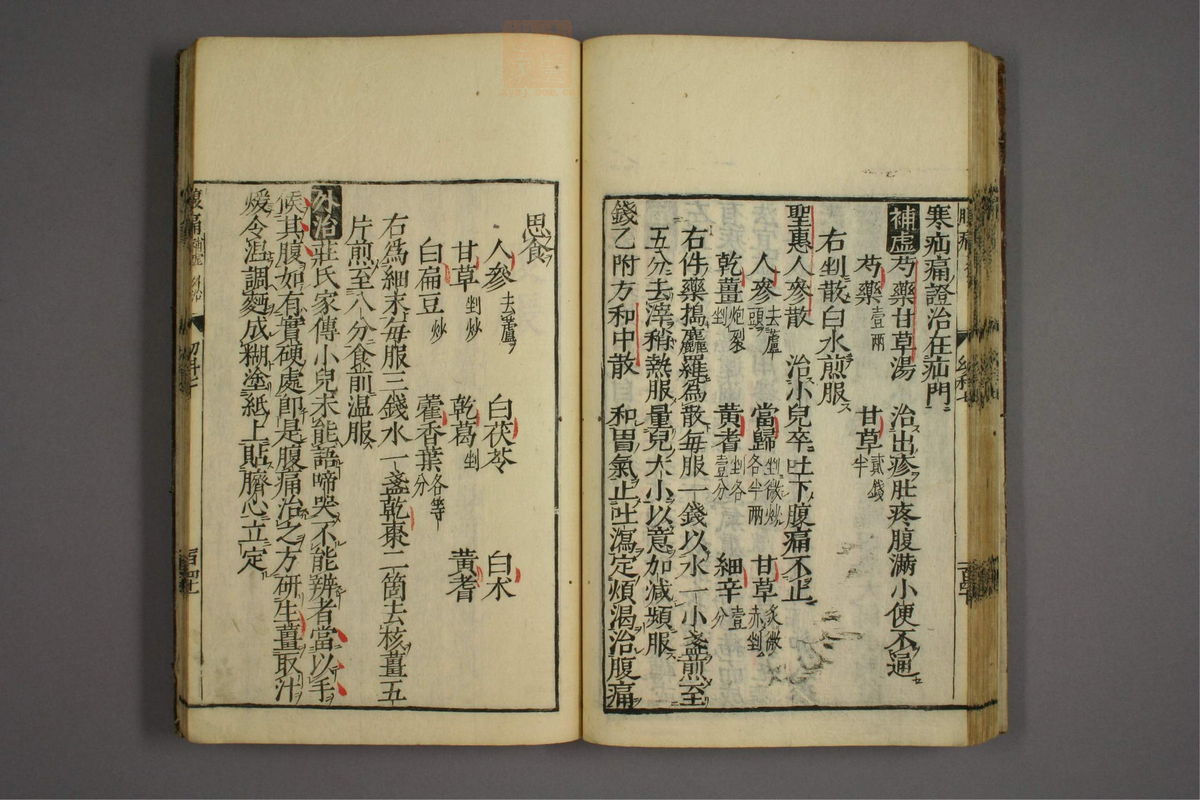 寒疝痛證治在疝門
補虛芍藥甘草湯　治出疹肚疼腹滿小便不通
芍藥壹兩　甘草貳錢半
右剉散白水煎服
聖惠人參散　治小兒卒吐下腹痛不止
人參去蘆頭　當歸剉微炒各半兩　甘草炙微赤剉
乾薑炮裂剉　黃耆剉各壹分　細辛壹分
右件藥搗麤羅爲散每服一錢以水一小盞煎至
五分去滓稍熱服量兒大小以意加減頻服
錢乙附方和中散　和胃氣止吐瀉定煩渴治腹痛
思食
人參去蘆　白茯苓　白朮
甘草剉炒　乾葛剉　黃耆
白扁豆炒　藿香葉各等分
右爲細末每服三錢水一盞乾棗二箇去核薑五
片煎至八分食前温服
外治莊氏家傳小兒未能語啼哭不能辨者當以手
候其腹如有實硬處即是腹痛治之方研生薑取汁
煖令温調麵成糊塗紙上貼臍心立定
腹痛補虛 外治